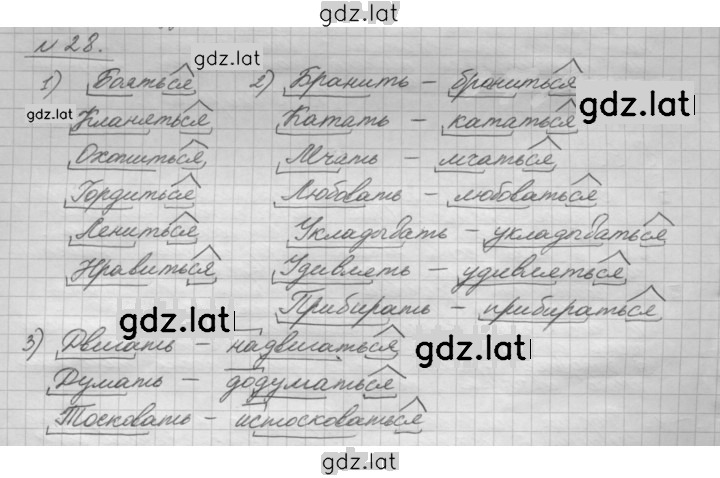 gdz.lat
№ 28.
gdz.lat
1) Бояться 2) Бранить – браниться
gdz.lat Кланяться Катать – кататься gdz.lat
Охотиться Мчать – мчаться
Гордиться Любовать – любоваться
Лениться Укладывать – укладываться
Нравиться Удивлять – удивляться
Прибирать – прибираться
gdz.lat
3) Двигать – надвигаться gdz.lat
Думать – додуматься
Тосковать – истосковаться
gdz.lat